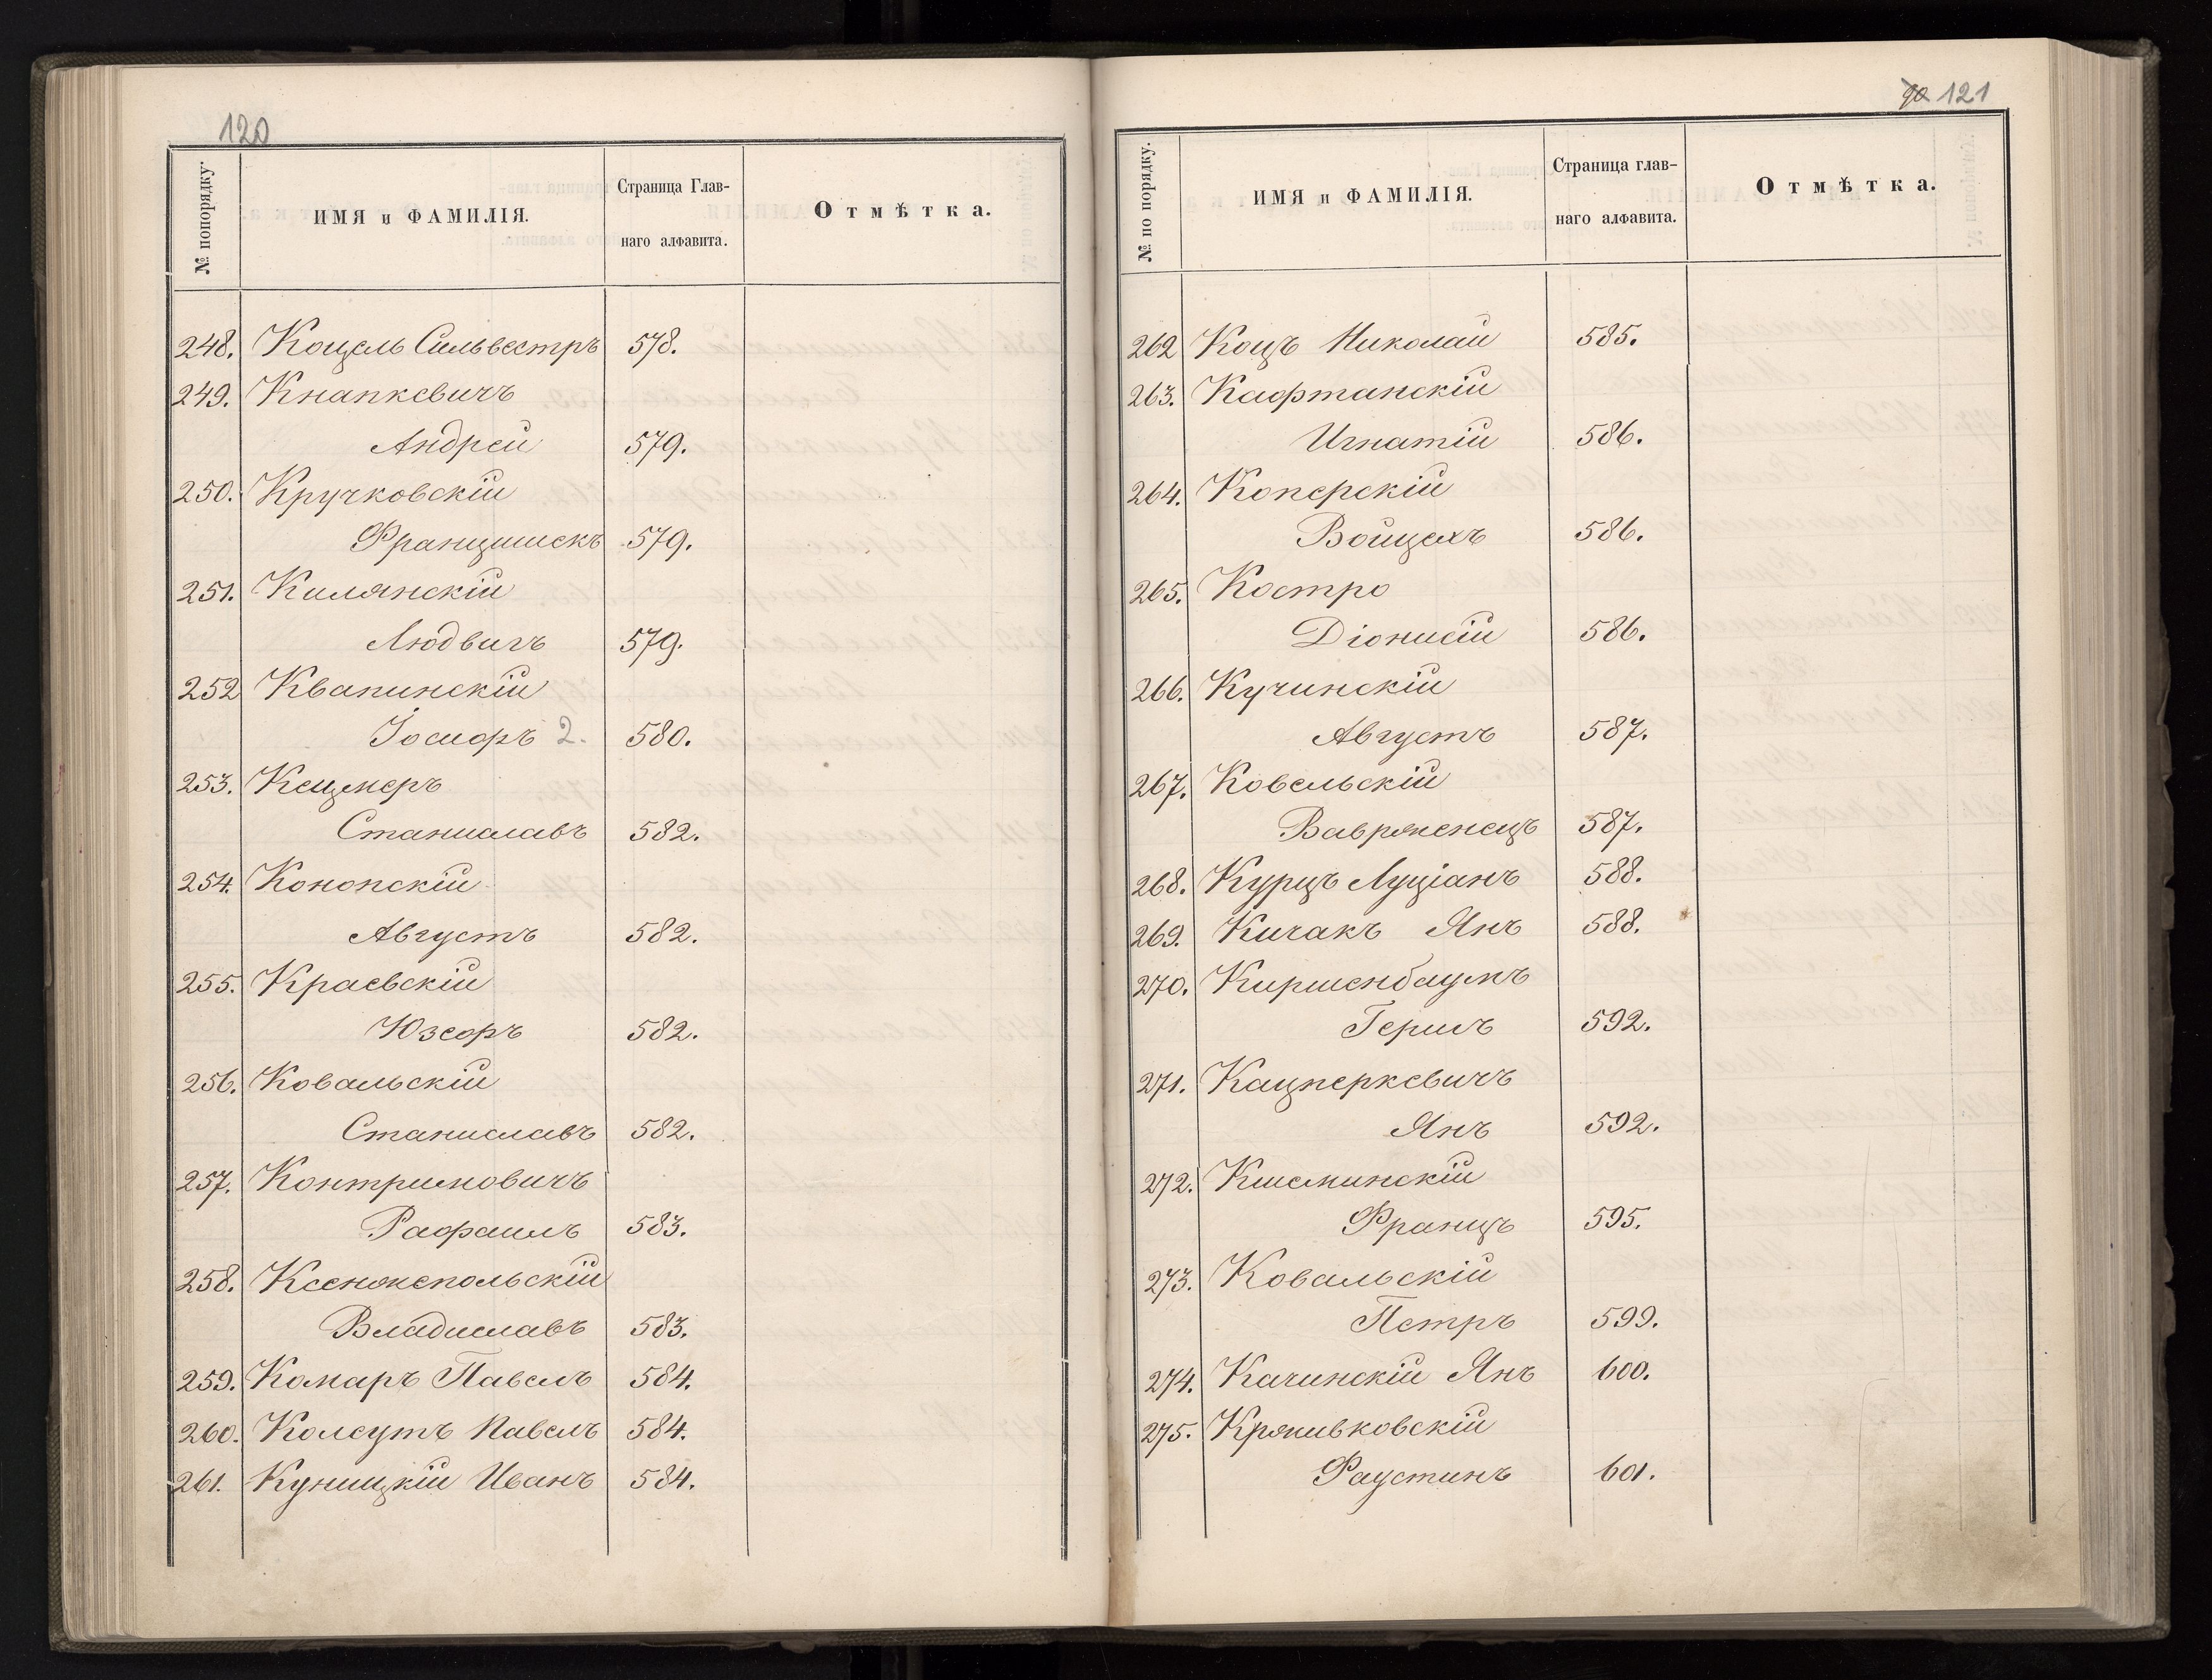 120
№ попорядку.
ИМЯ и ФАМИЛІЯ.
Страница Глав-
наго алфавита.
Отмѣтка.
248. Коцель Сильвестръ 578.
249. Кнапкевичъ
Андрей 579.
250. Кручковскій
Францишекъ 579.
251. Килянскій
Людвигъ 579.
252 Квапинскій
Іосифъ 2. 580.
253. Кецмеръ
Станиславъ 582.
254. Конопскій
Августъ 582.
255. Краевскій
Юзефъ 582.
256. Ковальскій
Станиславъ 582.
257. Контримовичъ
Рафаилъ 583.
258. Ксенжепольскій
Владиславъ 583.
259. Комаръ Павелъ 584.
260. Колсутъ Павелъ 584.
261. Куницкій Иванъ 584.
121
№ по порядку.
ИМЯ и ФАМИЛІЯ.
Страница глав-
наго алфавита.
Отмѣтка.
262 Коцъ Николай 585.
263. Кафтанскій
Игнатій 586.
264. Коперскій
Войцехъ 586.
265. Костро
Діонисій 586.
266. Кучинскій
Августъ 587.
267. Ковельскій
Ваврженецъ 587.
268. Курцъ Луціанъ 588.
269. Кичакъ Янъ 588.
270. Киршенбаумъ
Гершъ 592.
271. Кацперкевичъ
Янъ 592.
272. Кшеминскій
Францъ 595.
273. Ковальскій
Петръ 599.
274. Качинскій Янъ 600.
275. Крживковскій
Фаустинъ 601.